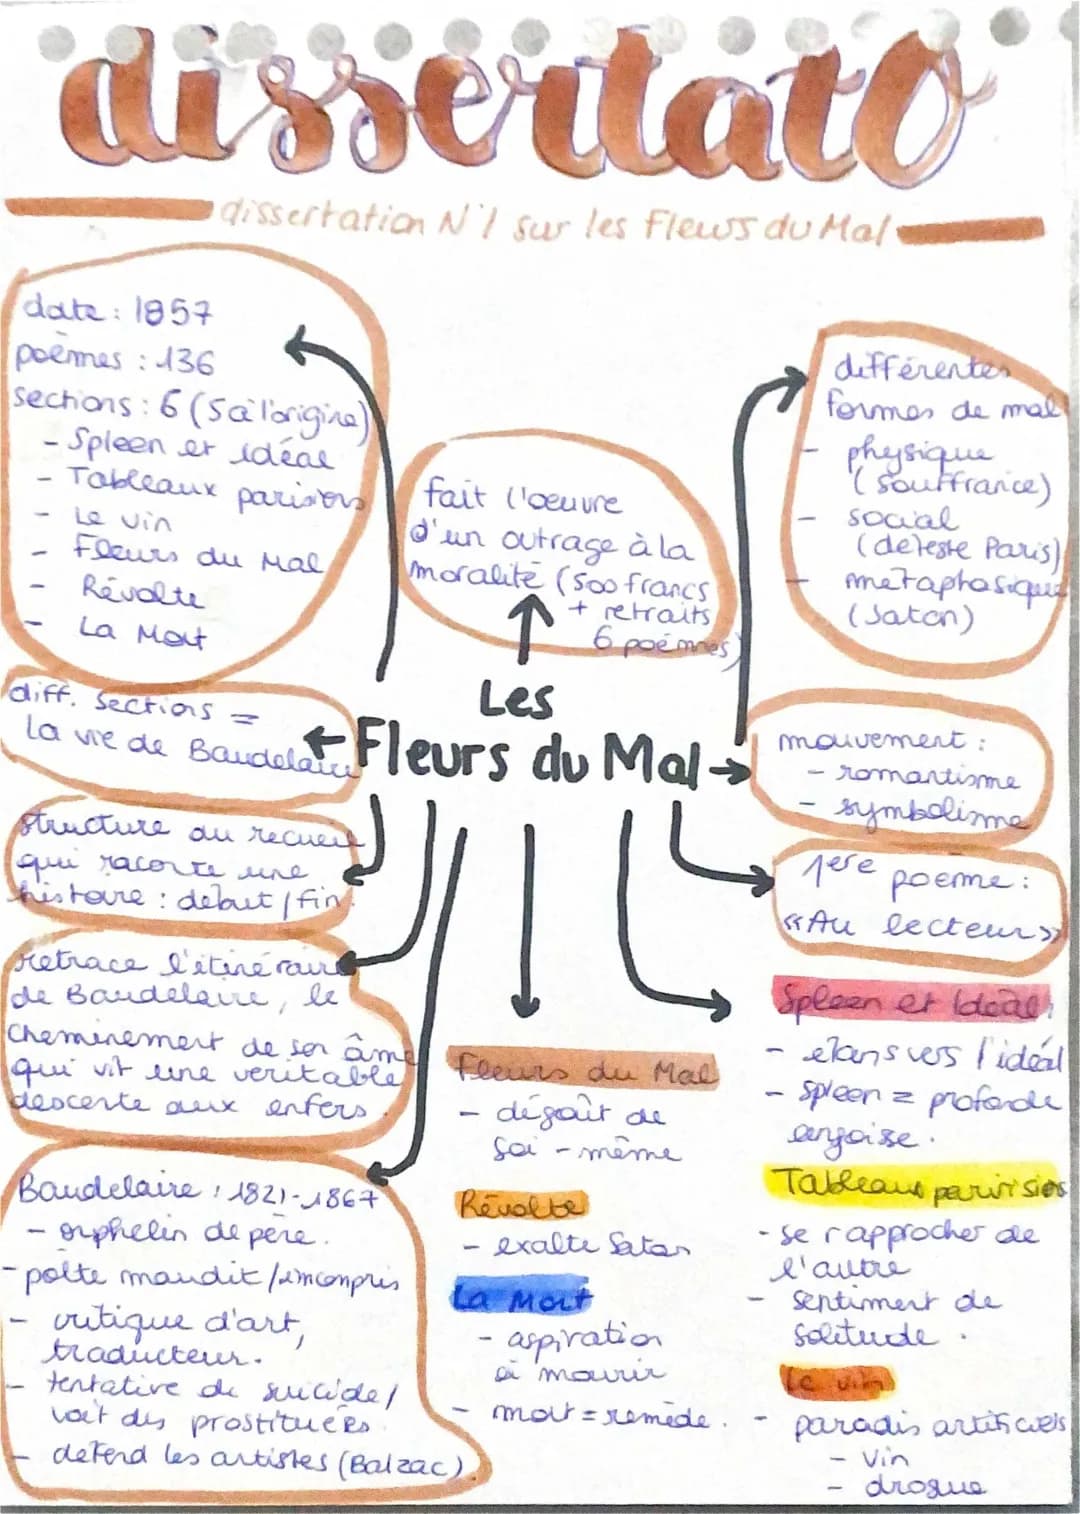 dissertato
dissertation N°1 sur les Fleurs du Mal
date : 1857
poèmes : 136
sections : 6 (5 à l'origine)
- Spleen et idéal
- Tableaux parisiens
- Le vin
- Fleurs du Mal
- Révolte
- La Mort
fait l'oeuvre
d'un outrage à la
moralité (500 francs
+ retraits
6 poèmes)
différentes
formes de mal
- physique
(souffrance)
- social
(déteste Paris)
- métaphasique
(Satan)
Les
Fleurs du Mal
diff. sections =
la vie de Baudelaire
structure du recueil
qui raconte une
histoire : début / fin
retrace l'itinéraire
de Baudelaire, le
cheminement de son âme
qui vit une véritable
descente aux enfers.
Baudelaire : 1821-1867
- orphelin de père.
- poète maudit / incompris
- critique d'art,
traducteur.
- tentative de suicide /
voit des prostituées.
- défend les artistes (Balzac)
mouvement :
- romantisme
- symbolisme
1ère poème :
«Au lecteur»
Fleurs du Mal
- dégoût de
soi-même
Révolte
- exalte Satan
La Mort
- aspiration
à mourir
- mort = remède.
Spleen et Idéal
- élans vers l'idéal
- spleen = profonde
angoisse.
Tableaux parisiens
- se rapprocher de
l'autre
- sentiment de
solitude.
Le vin
- paradis artificiels
- vin
- drogue